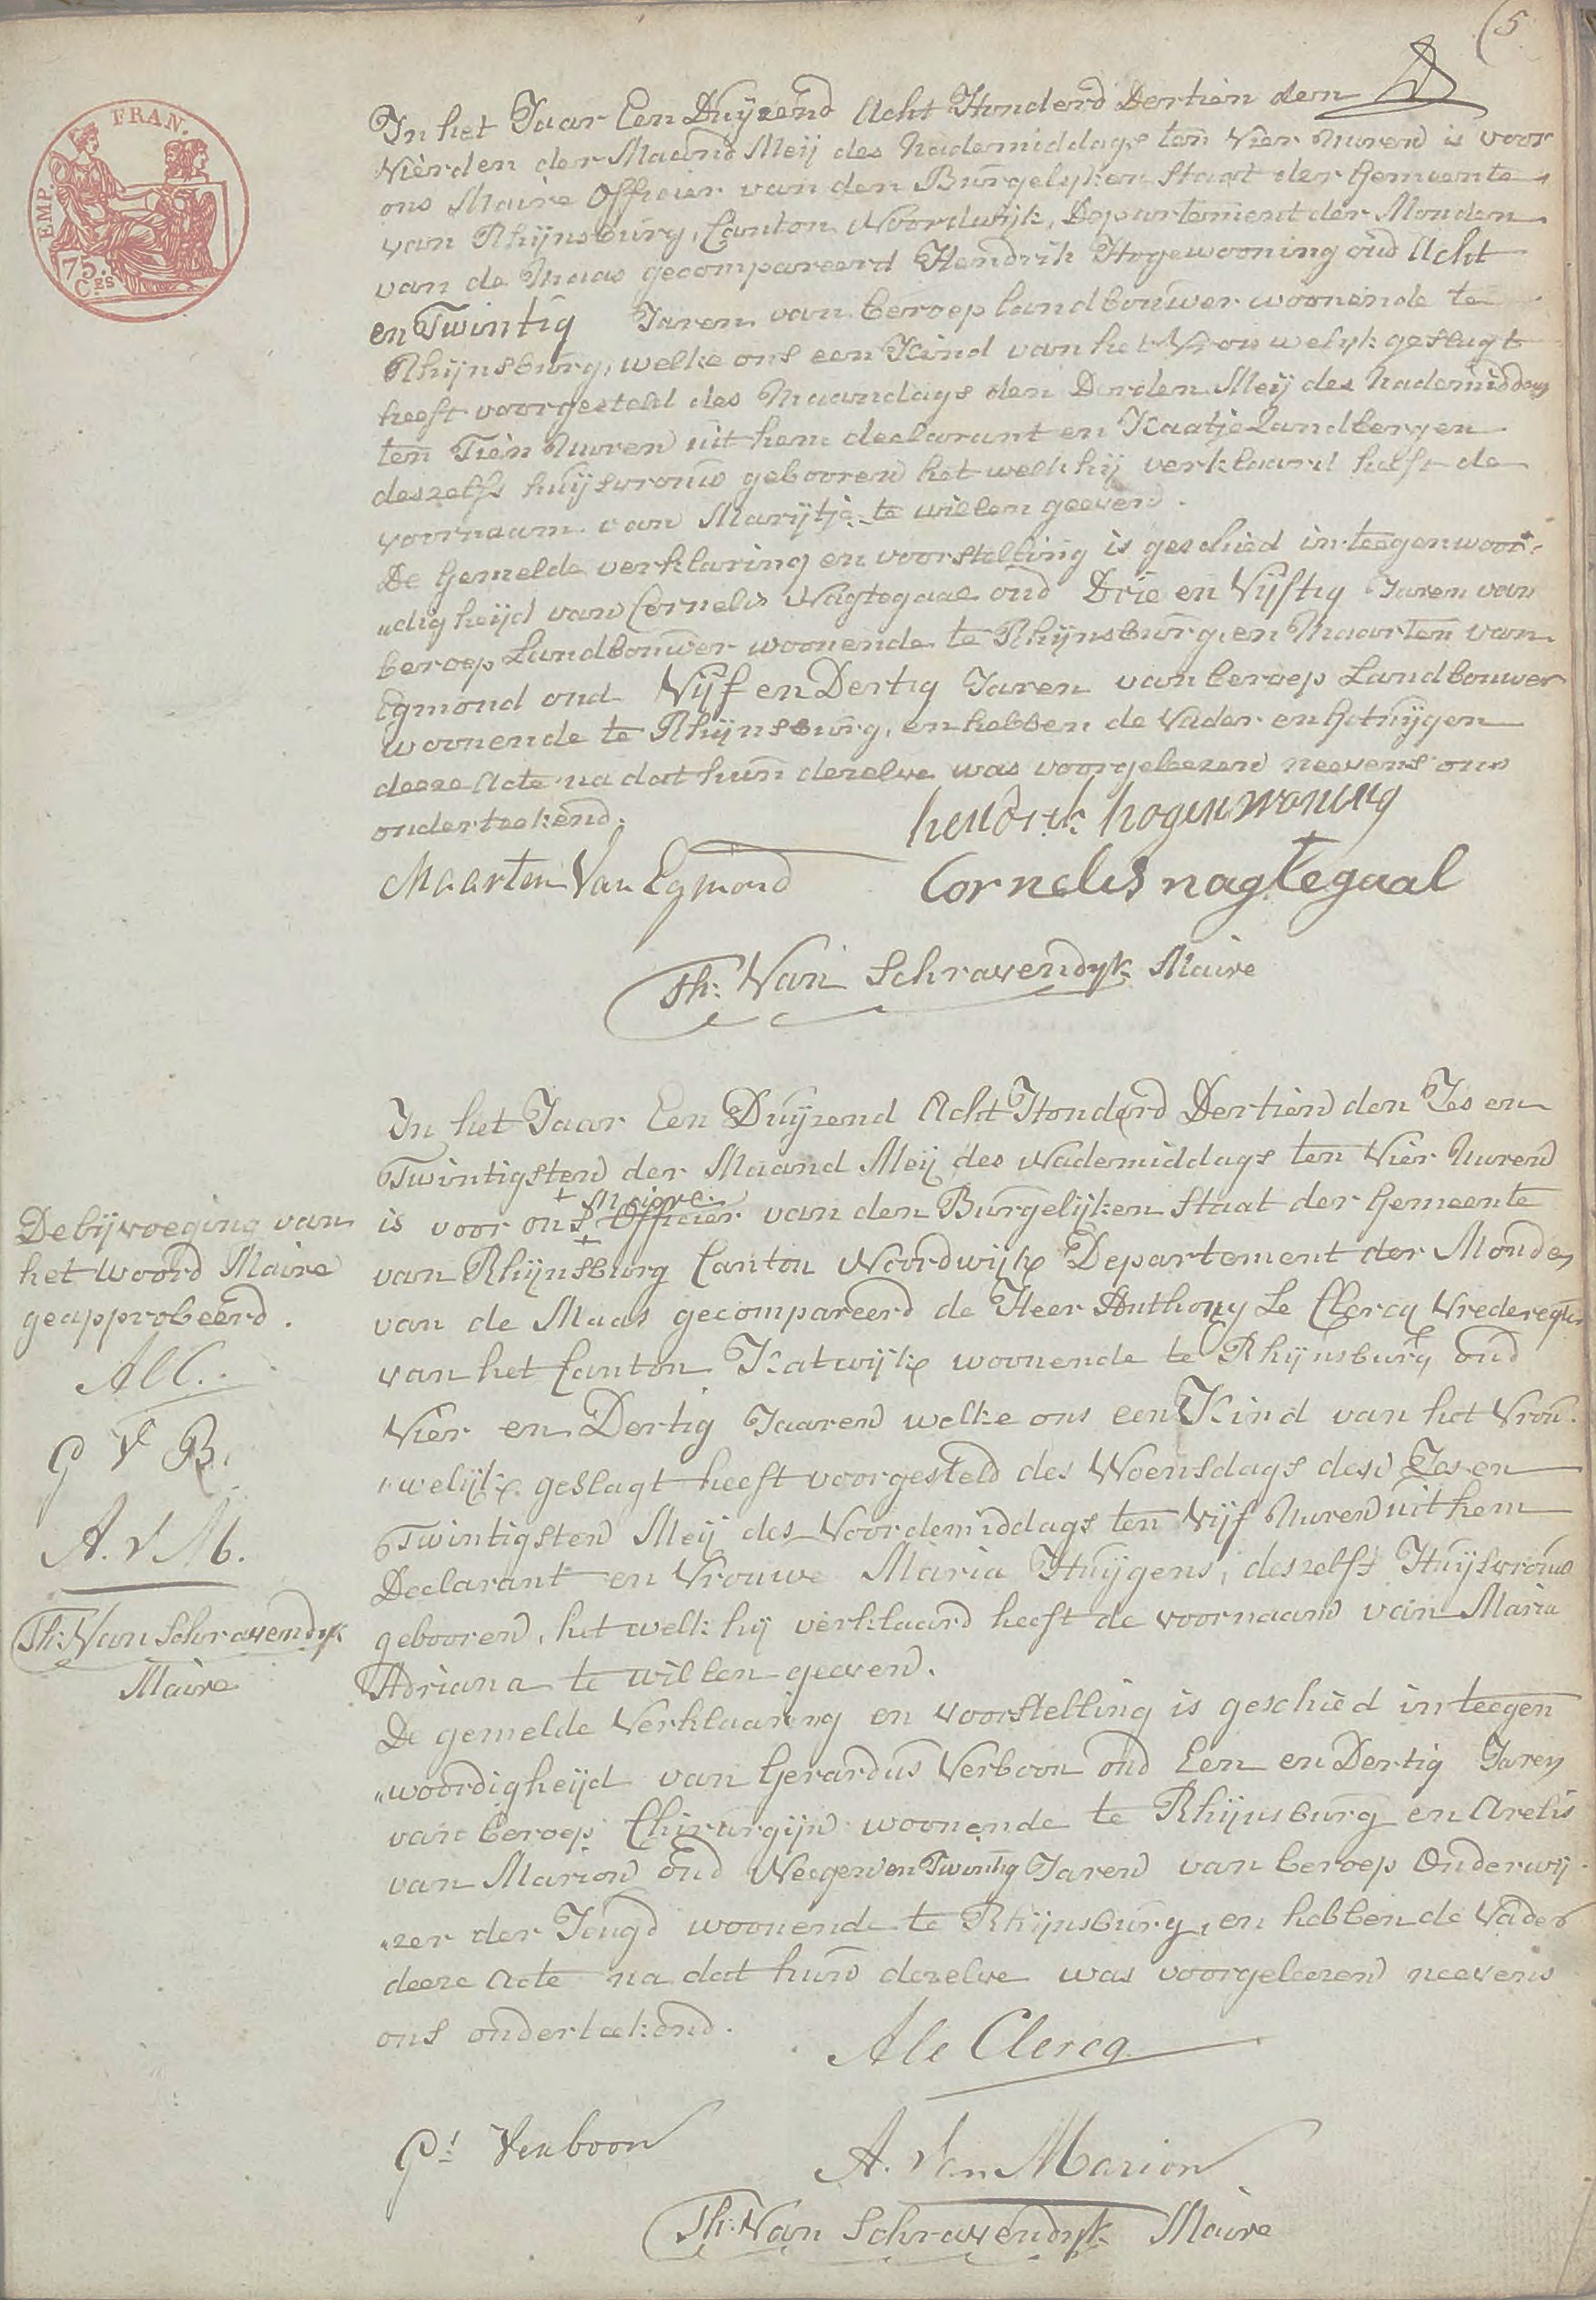 (5
EMP. FRAN.
75.
C.es
In het Jaar Een Duyzend Acht Honderd Dertien den
Vierden der Maand Meij des Nademiddags ten Vier Uuren is voor
ons Maire Officier van den Burgelyken Staat der Gemeente
van Rhijnsburg, Canton Noordwijk, Departement der Monden
van de Maas gecompareerd Hendrik Hogewooning oud Acht
en Twintig Jaren van beroep landbouwer woonende te
Rhijnsburg, welke ons een Kind van het Vrouwelyk geslagt
heeft voorgesteld des Maandags den Derden Meij des Nademiddags
ten Tien Uuren uit hem declarant en Kaatje Landbergen
deszelfs huijsvrouw gebooren het welk hij verklaard heeft de
voornaam van Marijtje te willen geeven.
De Gemelde verklaring en voorstelling is geschied in teegenwoor„
„digheijd van Cornelis Nagtegaal oud Drie en Vijftig Jaren van
beroep Landbouwer woonende te Rhijnsburg, en Maarten van
Egmond oud Vijf en Dertig Jaren van beroep Landbouwer
woonende te Rhijnsburg, en hebben de Vader en Getuijgen
deeze Acte na dat hun dezelve was voorgeleezen neevens ons
onderteekend.
hendrik hogenwoning
Maarten Van Egmond
Cornelis nagtegaal
Th: Van Schravendyk Maire
In het Jaar Een Duyzend Acht Honderd Dertien den Zes en
Twintigsten der Maand Meij des Nademiddags ten Vier Uuren
+ Maire
is voor ons Officier van den Burgelijken Staat der Gemeente
van Rhijnsburg Canton Noordwijk Departement der Monden
van de Maas gecompareerd de Heer Anthony Le Clercq Vrederegter
van het Canton Katwijk woonende te Rhijnsburg oud
Vier en Dertig Jaaren welke ons een Kind van het Vrou„
„welijk geslagt heeft voorgesteld des Woensdags den Zes en
Twintigsten Meij des Voordemiddags ten Vijf Uuren uit hem
Declarant en Vrouwe Maria Huijgens, deszelfs Huijsvrouw
gebooren, het welk hij verklaard heeft de voornaam van Maria
Adriana te willen geeven.
De gemelde Verklaaring en voorstelling is geschied in teegen
„woordigheijd van Gerardus Verboon oud Een en Dertig Jaren
van beroep Chirurgijn woonende te Rhijnsburg en Arelis
van Marion oud Neegen en Twintig Jaren van beroep Onderwij
„zer der Jeugd woonende te Rhijnsburg, en hebben de Vader
deeze Acte na dat hun dezelve was voorgeleezen neevens
ons onderteekend.
A le Clercq
G.! Verboon
A. Van Marion
Th: Van Schravendyk Maire
De bijvoeging van
het woord Maire
geapprobeerd.
A l C.
G V B.
A. v M.
Th: Van Schravendyk
Maire